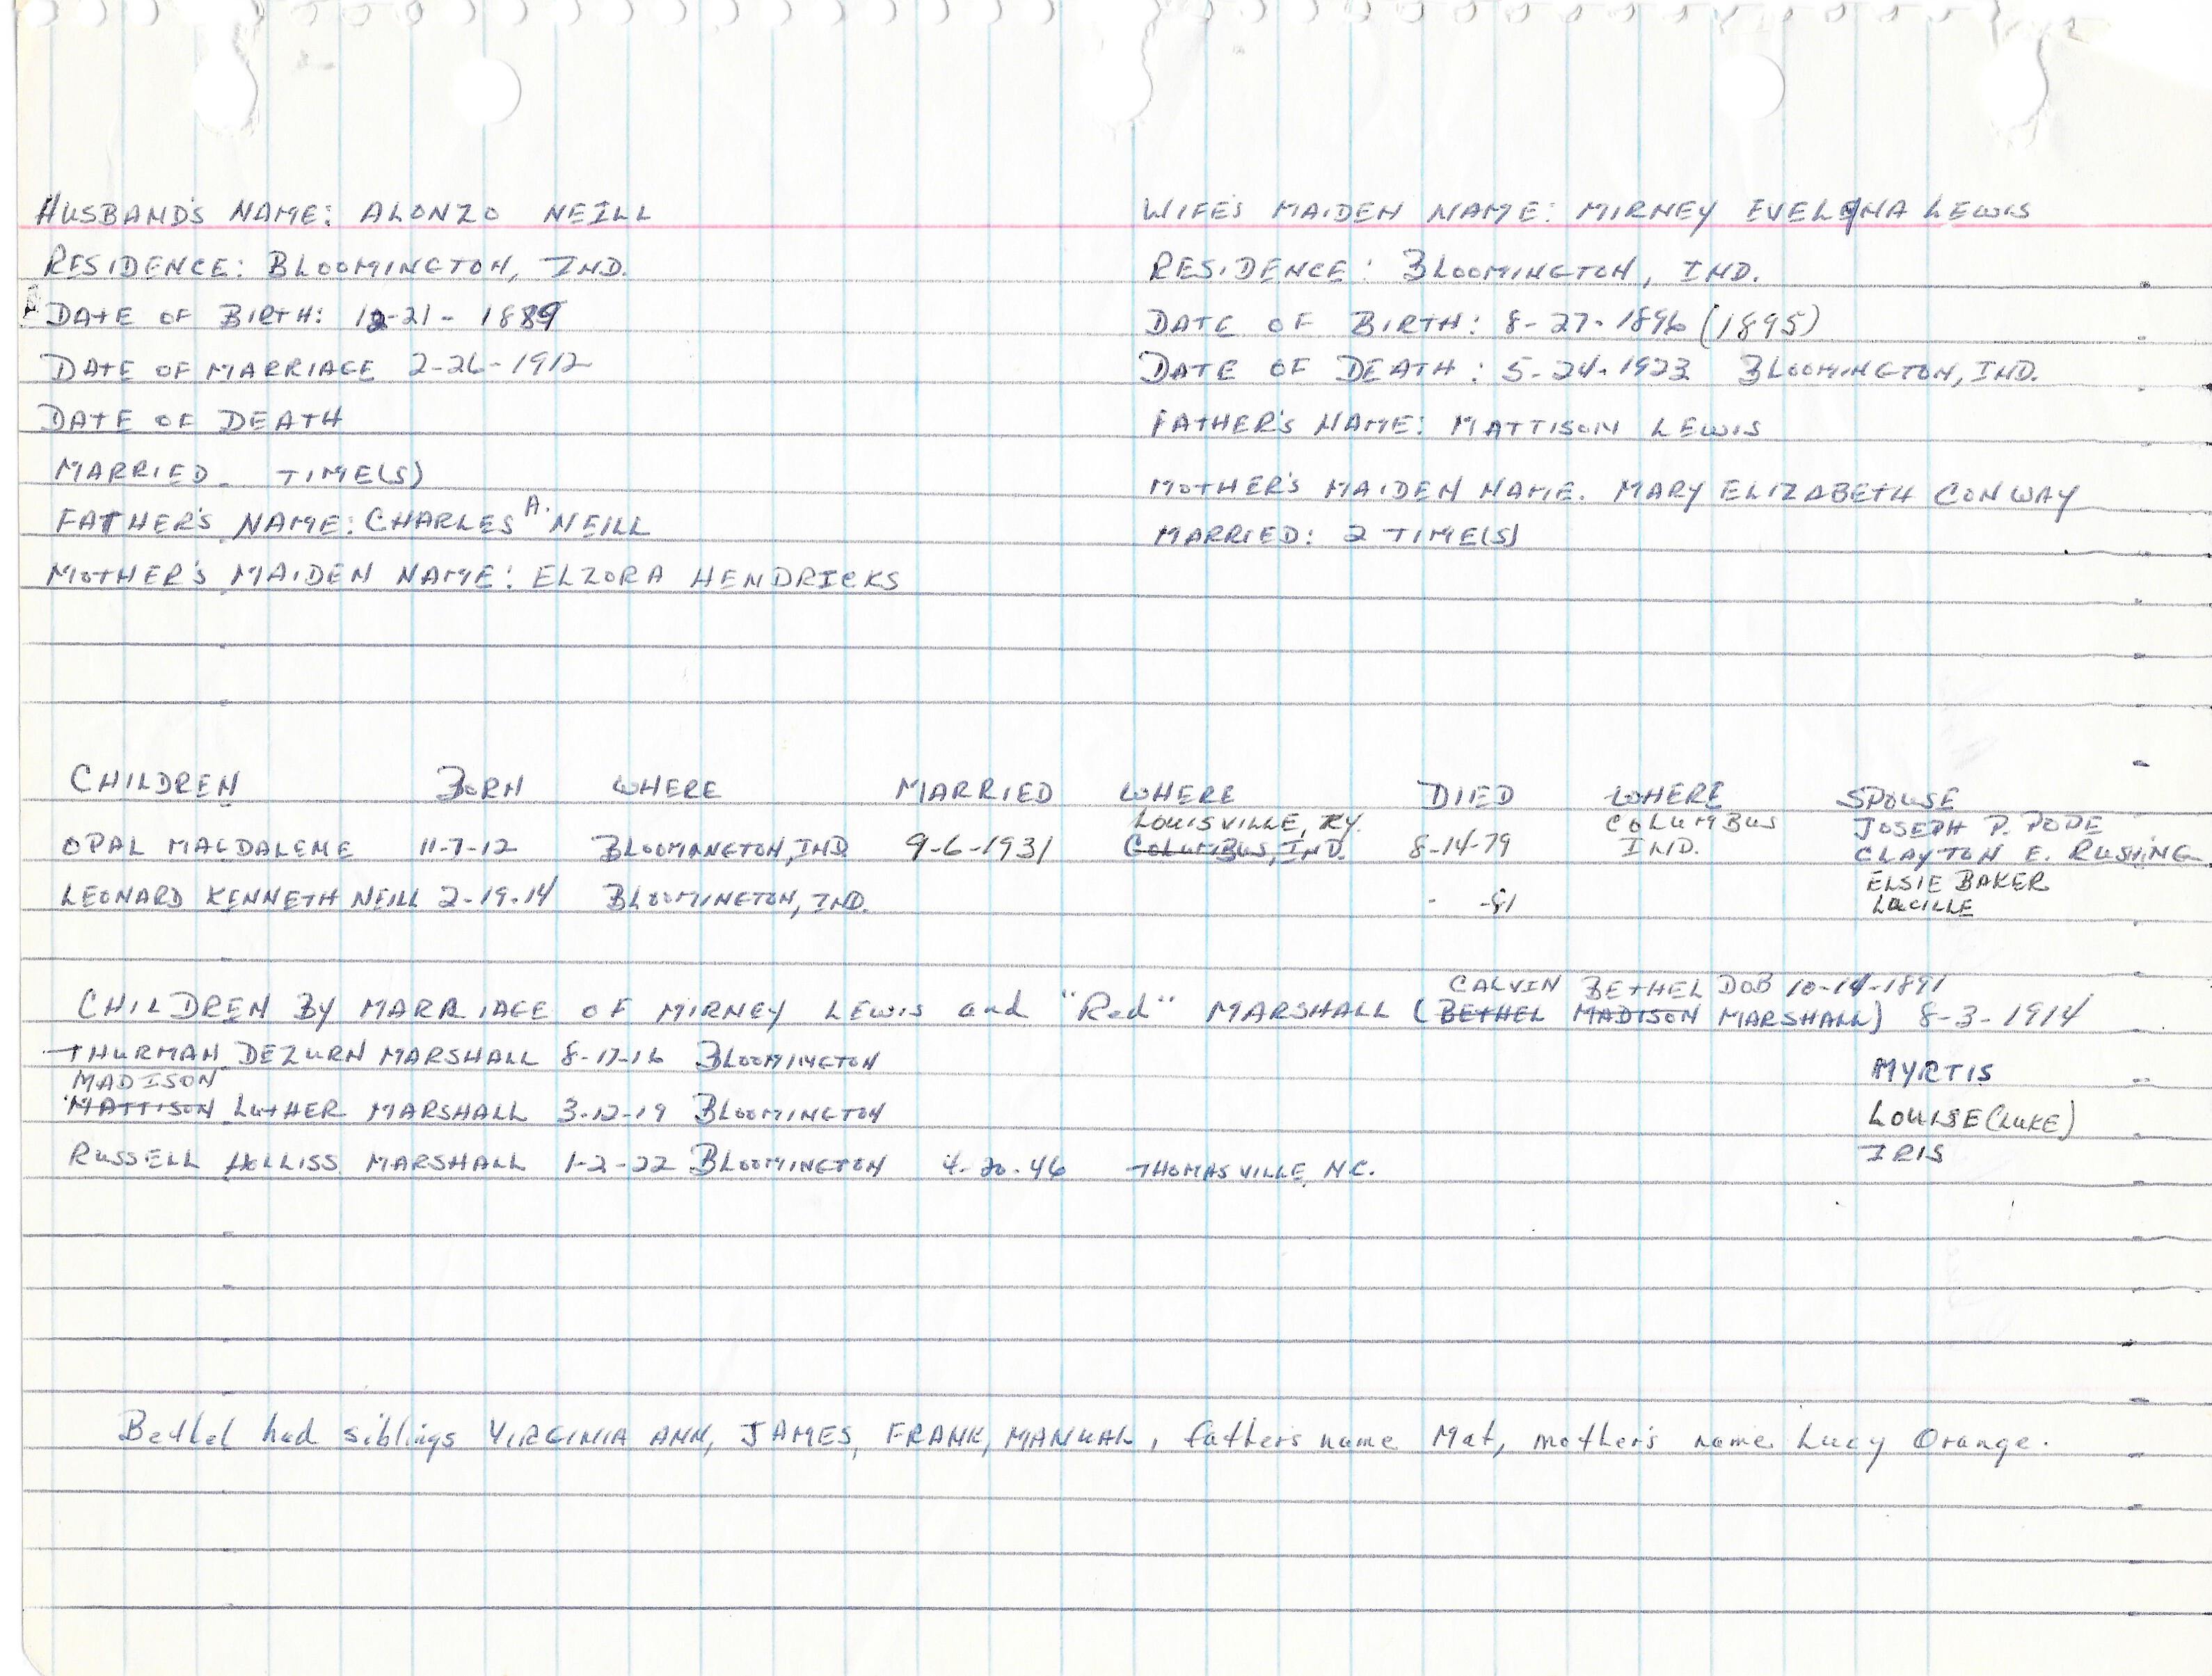 HUSBAND'S NAME: ALONZO NEILL
RESIDENCE: BLOOMINGTON, IND.
DATE OF BIRTH: 12-21-1889
DATE OF MARRIAGE 2-26-1912
DATE OF DEATH
MARRIED TIME(S)
FATHER'S NAME: CHARLES A. NEILL
MOTHER'S MAIDEN NAME: ELZORA HENDRICKS
WIFE'S MAIDEN NAME: MIRNEY EVELENA LEWIS
RESIDENCE: BLOOMINGTON, IND.
DATE OF BIRTH: 8-27-1896 (1895)
DATE OF DEATH: 5-24-1923 BLOOMINGTON, IND.
FATHER'S NAME: MATTISON LEWIS
MOTHER'S MAIDEN NAME. MARY ELIZABETH CONWAY
MARRIED: 2 TIME(S)
CHILDREN BORN WHERE MARRIED WHERE DIED WHERE SPOUSE
LOUISVILLE, KY. COLUMBUS JOSEPH P. POPE
OPAL MAGDALENE 11-7-12 BLOOMANGTON, IND. 9-6-1931 COLUMBUS, IND. 8-14-79 IND. CLAYTON E. RUSHING
ELSIE BAKER
LEONARD KENNETH NEILL 2-19-14 BLOOMINGTON, IND. - -81 LUCILLE
CALVIN BETHEL DOB 10-14-1891
CHILDREN BY MARRIAGE OF MIRNEY LEWIS and "Red" MARSHALL (BETHEL MADISON MARSHALL) 8-3-1914
THURMAN DEZURN MARSHALL 8-17-16 BLOOMINGTON MYRTIS
MADISON
MATTISON LUTHER MARSHALL 3-12-19 BLOOMINGTON LOUISE (LUKE)
RUSSELL HOLLISS MARSHALL 1-2-22 BLOOMINGTON 4-20-46 THOMASVILLE, N.C. IRIS
Bethel had siblings VIRGINIA ANN, JAMES, FRANK, MANUAL, father's name Mat, mother's name Lucy Orange.